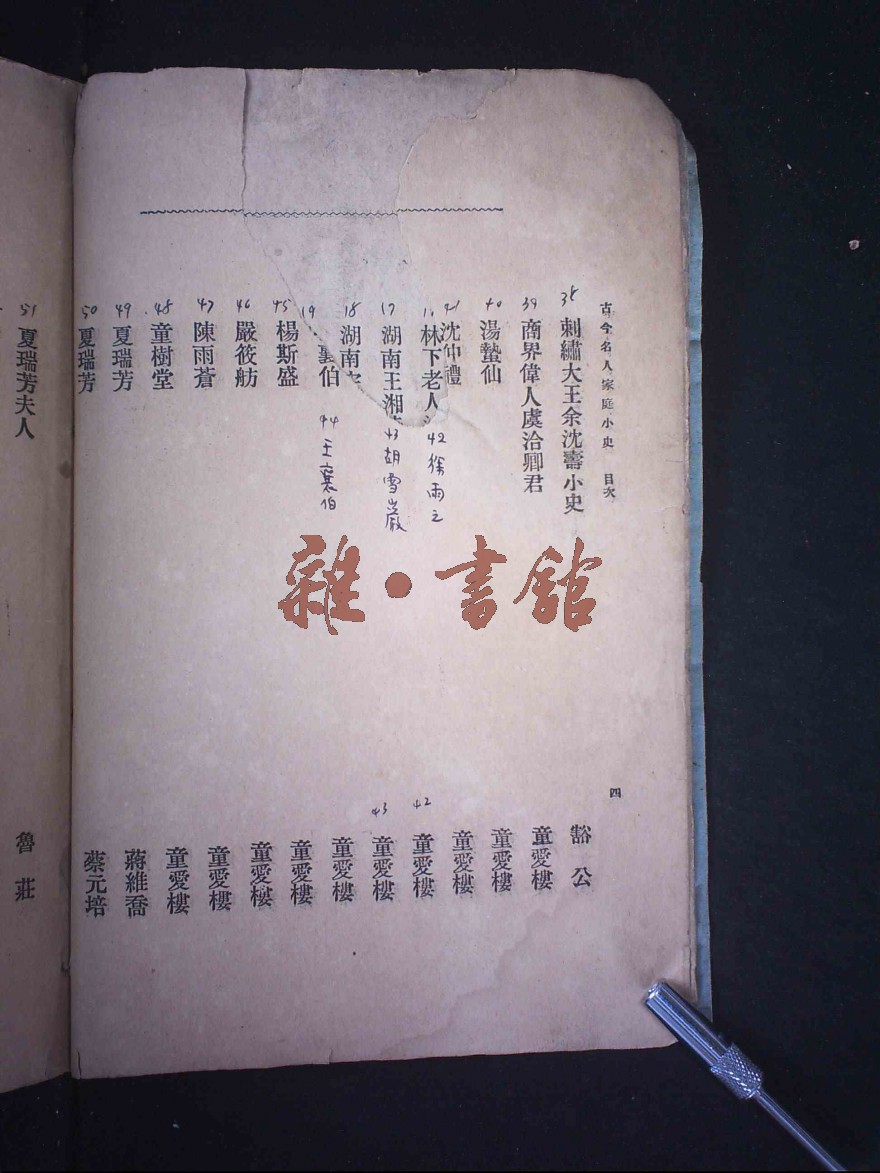 古今名人家庭小史 目次
四
38 刺繡大王余沈壽小史 豁公
39 商界偉人虞洽卿君 童愛樓
40 湯蟄仙 童愛樓
41 沈仲禮 童愛樓
林下老人
42 徐雨之 42 童愛樓
17 湖南王湘
43 胡雪巖 43 童愛樓
18 湖南
19 伯
44 王襄伯 童愛樓
45 楊斯盛 童愛樓
46 嚴筱舫 童愛樓
47 陳雨蒼 童愛樓
48 童樹堂 童愛樓
49 夏瑞芳 蔣維喬
50 夏瑞芳 蔡元培
51 夏瑞芳夫人 魯莊
雜·書館